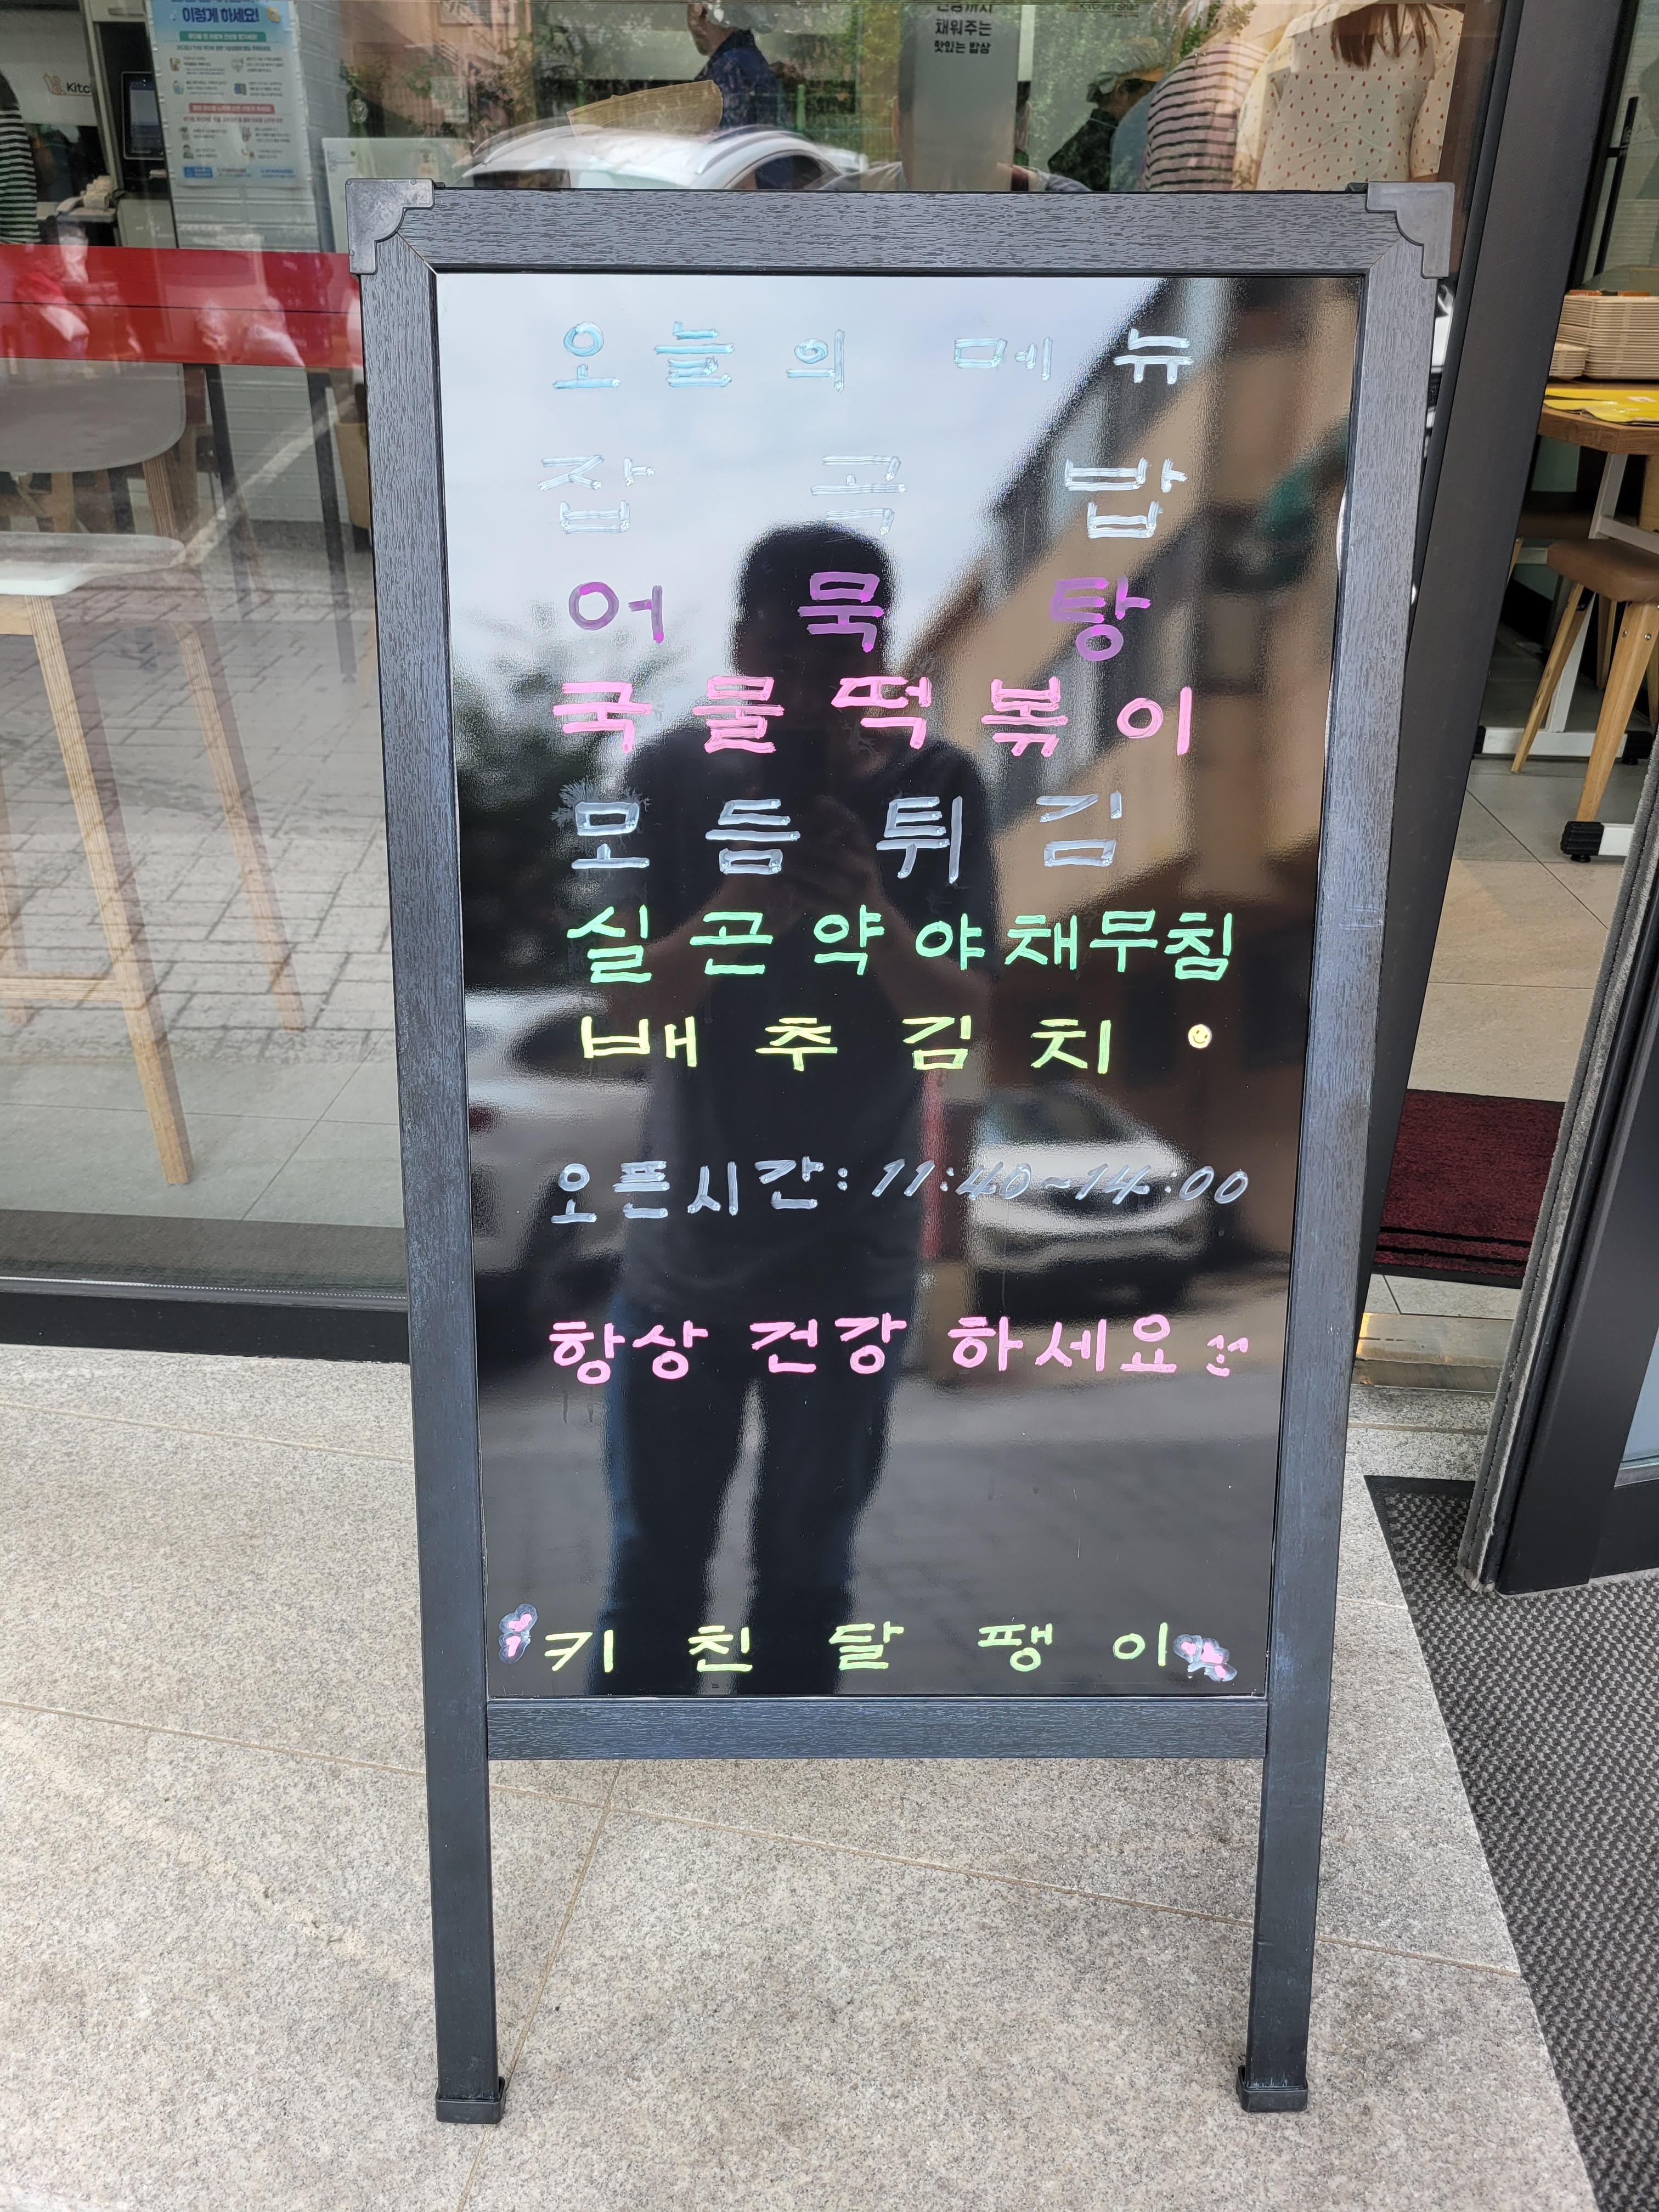 이렇게 하세요!
Kitc
채워주는
맛있는 밥상
오늘의 메뉴
잡곡밥
어묵탕
국물떡볶이
모듬튀김
실곤약야채무침
배추김치
오픈시간: 11:40~14:00
항상 건강 하세요
키친달팽이